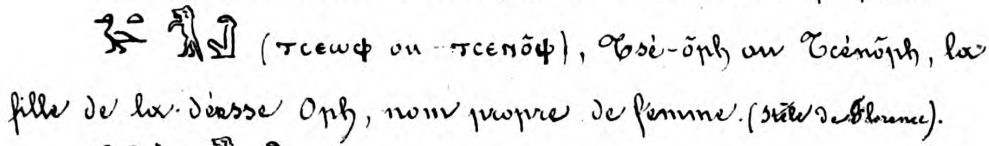 𓅭𓏏 (ⲧⲥⲉⲱⲫ ou ⲧⲥⲉⲛⲟ̄ⲫ), Tsé-ōph ou Tsénōph, la
fille de la déesse Oph, nom propre de femme. (Stèle de Florence).